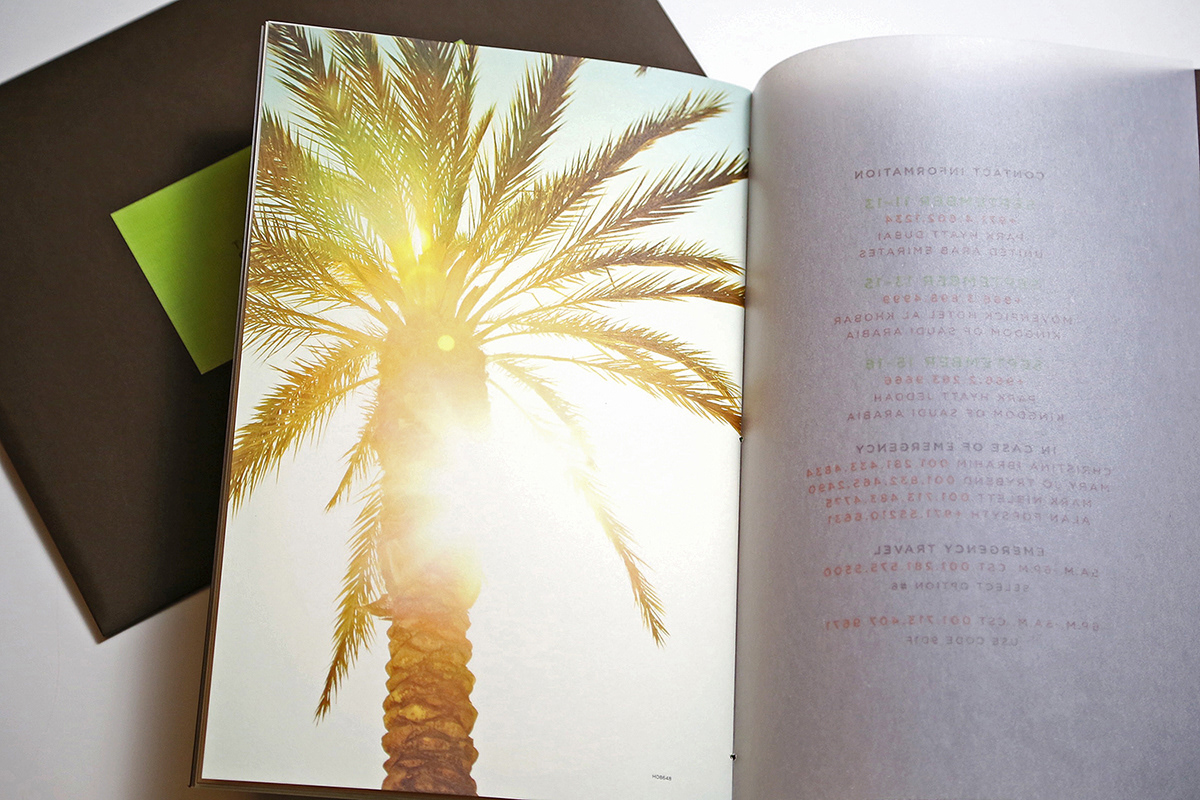 H08648
CONTACT INFORMATION
SEPTEMBER 11-13
+971.4.602.1234
PARK HYATT DUBAI
UNITED ARAB EMIRATES
SEPTEMBER 13-15
+966.3.898.4999
MÖVENPICK HOTEL AL KHOBAR
KINGDOM OF SAUDI ARABIA
SEPTEMBER 15-18
+966.2.263.9666
PARK HYATT JEDDAH
KINGDOM OF SAUDI ARABIA
IN CASE OF EMERGENCY
CHRISTINA IBRAHIM 001.281.433.4834
MARY JO 001.832.465.2490
MARK 001.713.483.4775
ALAN FORSYTH +971.55210.6631
EMERGENCY TRAVEL
5AM-6PM CST 001.281.575.5500
SELECT OPTION #6
6PM-5AM CST 001.713.407.9671
USE CODE